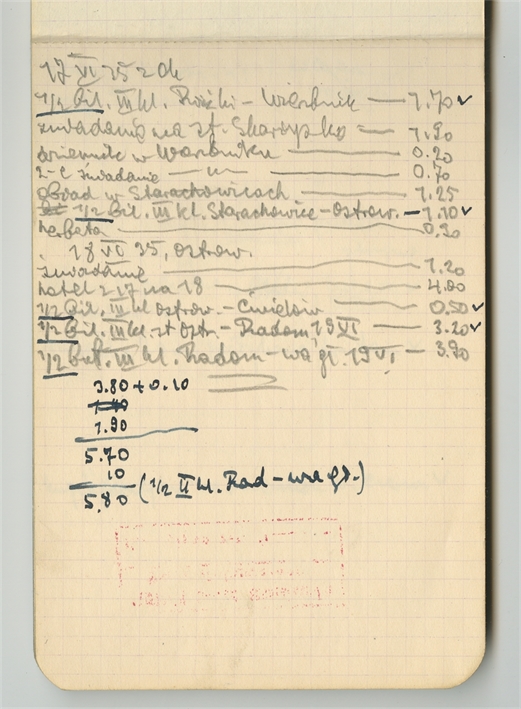 17 VI 35 z dk
1/2 bil. III kl. Rożki - Wierzbnik — 1.70 ✓
śniadanie na st. Skarżysko — 1.90
dziennik w Wierzbniku — 0.20
2-e śniadanie — „ — 0.70
obiad w Starachowicach — 1.25
1/2 bil. III kl. Starachowice - Ostrow. — 1.10 ✓
herbata — 0.30
18 VI 35, Ostrow.
śniadanie — 1.20
hotel z 17 na 18 — 4.00
1/2 bil. III kl Ostrow. - Ćmielów — 0.50 ✓
1/2 bil. III kl. st Ostr. - Radom 19 VI — 3.20 ✓
1/2 bil. III kl. Radom - Wa gł. 19 VI — 3.90
3.80 + 0.10
1.90
5.70
10
5.80 (1/2 II kl. Rad - wa gł.)